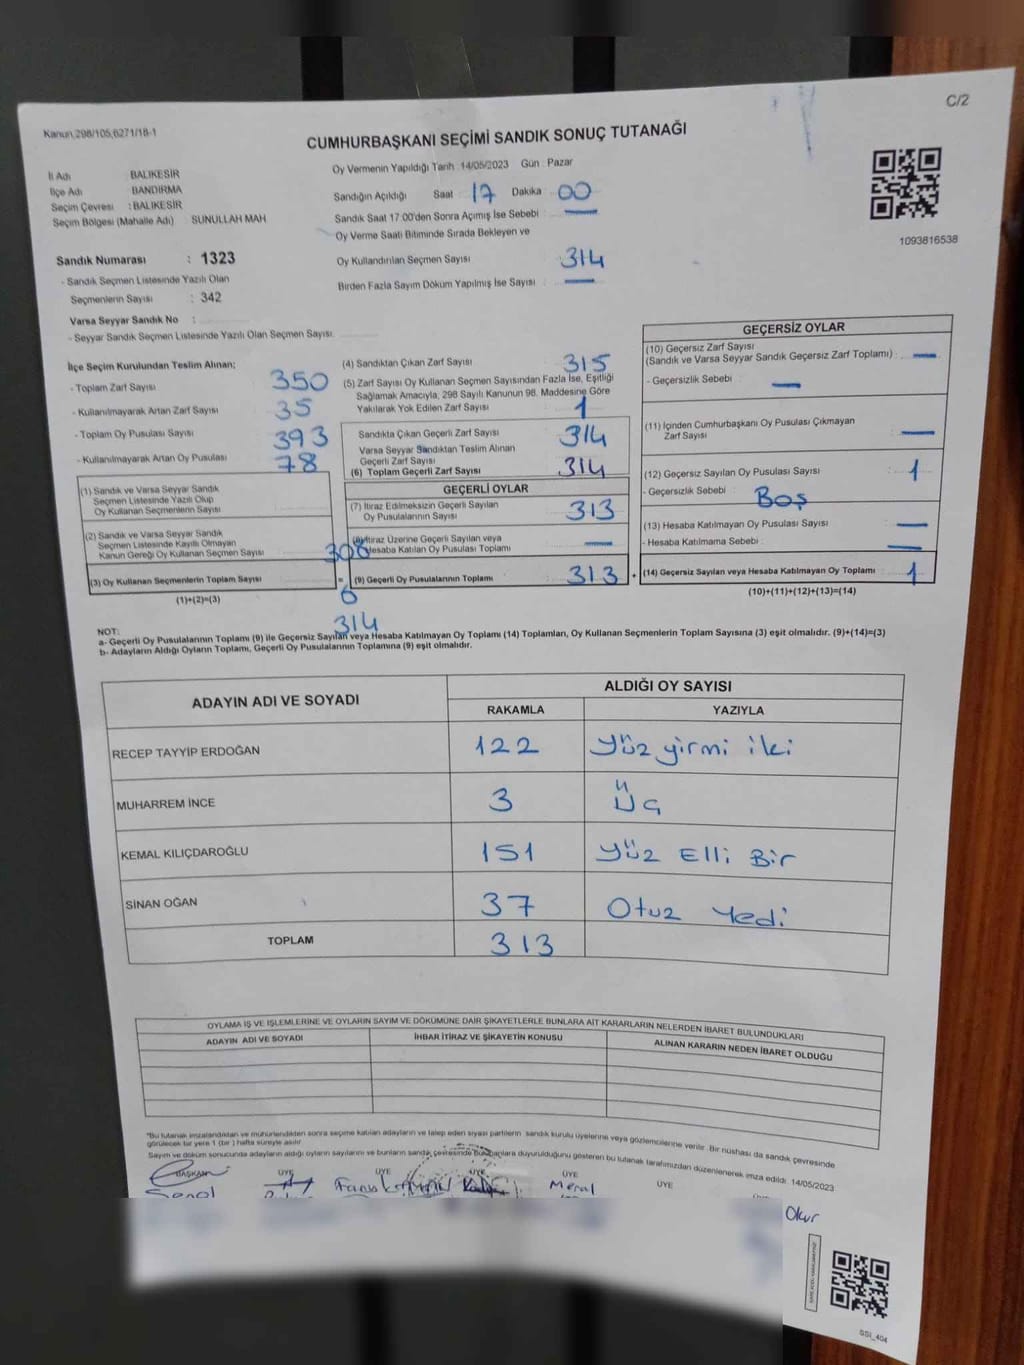 C/2
Kanun 298/105,6271/18-1
CUMHURBAŞKANI SEÇİMİ SANDIK SONUÇ TUTANAĞI
İl Adı : BALIKESİR
İlçe Adı : BANDIRMA
Seçim Çevresi : BALIKESİR
Seçim Bölgesi (Mahalle Adı) : SUNULLAH MAH
Sandık Numarası : 1323
- Sandık Seçmen Listesinde Yazılı Olan
Seçmenlerin Sayısı : 342
Varsa Seyyar Sandık No :
- Seyyar Sandık Seçmen Listesinde Yazılı Olan Seçmen Sayısı
Oy Vermenin Yapıldığı Tarih :14/05/2023 Gün : Pazar
Sandığın Açıldığı Saat 17 Dakika 00
Sandık Saat 17:00'den Sonra Açımış İse Sebebi : —
Oy Verme Saati Bitiminde Sırada Bekleyen ve
Oy Kullandırılan Seçmen Sayısı 314
Birden Fazla Sayım Döküm Yapılmış İse Sayısı —
1093816538
İlçe Seçim Kurulundan Teslim Alınan;
- Toplam Zarf Sayısı 350
- Kullanılmayarak Artan Zarf Sayısı 35
- Toplam Oy Pusulası Sayısı 393
- Kullanılmayarak Artan Oy Pusulası 78
(1) Sandık ve Varsa Seyyar Sandık
Seçmen Listesinde Yazılı Olup
Oy Kullanan Seçmenlerin Sayısı
(2) Sandık ve Varsa Seyyar Sandık
Seçmen Listesinde Kayıtlı Olmayan
Kanun Gereği Oy Kullanan Seçmen Sayısı 308
(3) Oy Kullanan Seçmenlerin Toplam Sayısı
(1)+(2)=(3) 6
314
(4) Sandıktan Çıkan Zarf Sayısı 315
(5) Zarf Sayısı Oy Kullanan Seçmen Sayısından Fazla İse, Eşitliği
Sağlamak Amacıyla, 298 Sayılı Kanunun 98. Maddesine Göre
Yakılarak Yok Edilen Zarf Sayısı 1
Sandıkta Çıkan Geçerli Zarf Sayısı 314
Varsa Seyyar Sandıktan Teslim Alınan
Geçerli Zarf Sayısı
(6) Toplam Geçerli Zarf Sayısı 314
GEÇERLİ OYLAR
(7) İtiraz Edilmeksizin Geçerli Sayılan
Oy Pusulalarının Sayısı 313
(8) İtiraz Üzerine Geçerli Sayılan veya
Hesaba Katılan Oy Pusulası Toplamı —
= (9) Geçerli Oy Pusulalarının Toplamı 313 +
GEÇERSİZ OYLAR
(10) Geçersiz Zarf Sayısı
(Sandık ve Varsa Seyyar Sandık Geçersiz Zarf Toplamı) : —
- Geçersizlik Sebebi : —
(11) İçinden Cumhurbaşkanı Oy Pusulası Çıkmayan
Zarf Sayısı —
(12) Geçersiz Sayılan Oy Pusulası Sayısı : 1
- Geçersizlik Sebebi : Boş
(13) Hesaba Katılmayan Oy Pusulası Sayısı —
- Hesaba Katılmama Sebebi : —
(14) Geçersiz Sayılan veya Hesaba Katılmayan Oy Toplamı : 1
(10)+(11)+(12)+(13)=(14)
NOT:
a- Geçerli Oy Pusulalarının Toplamı (9) ile Geçersiz Sayılan veya Hesaba Katılmayan Oy Toplamı (14) Toplamları, Oy Kullanan Seçmenlerin Toplam Sayısına (3) eşit olmalıdır. (9)+(14)=(3)
b- Adayların Aldığı Oyların Toplamı, Geçerli Oy Pusulalarının Toplamına (9) eşit olmalıdır.
ADAYIN ADI VE SOYADI ALDIĞI OY SAYISI
RAKAMLA YAZIYLA
RECEP TAYYİP ERDOĞAN 122 Yüz yirmi iki
MUHARREM İNCE 3 Üç
KEMAL KILIÇDAROĞLU 151 Yüz Elli Bir
SİNAN OĞAN 37 Otuz Yedi
TOPLAM 313
OYLAMA İŞ VE İŞLEMLERİNE VE OYLARIN SAYIM VE DÖKÜMÜNE DAİR ŞİKAYETLERLE BUNLARA AİT KARARLARIN NELERDEN İBARET BULUNDUKLARI
ADAYIN ADI VE SOYADI İHBAR İTİRAZ VE ŞİKAYETİN KONUSU ALINAN KARARIN NEDEN İBARET OLDUĞU
*Bu tutanak imzalandıktan ve mühürlendikten sonra seçime katılan adayların ve talep eden siyasi partilerin sandık kurulu üyelerine veya gözlemcilerine verilir. Bir nüshası da sandık çevresinde
görülecek bir yere 1 (bir ) hafta süreyle asılır.
Sayım ve döküm sonucunda adayların aldığı oyların sayılarını ve bunların sandık çevresinde bulunanlara duyurulduğunu gösteren bu tutanak tarafımızdan düzenlenerek imza edildi. 14/05/2023
BAŞKAN ÜYE ÜYE ÜYE ÜYE ÜYE
Şenol Meral
Okur
SSI_404